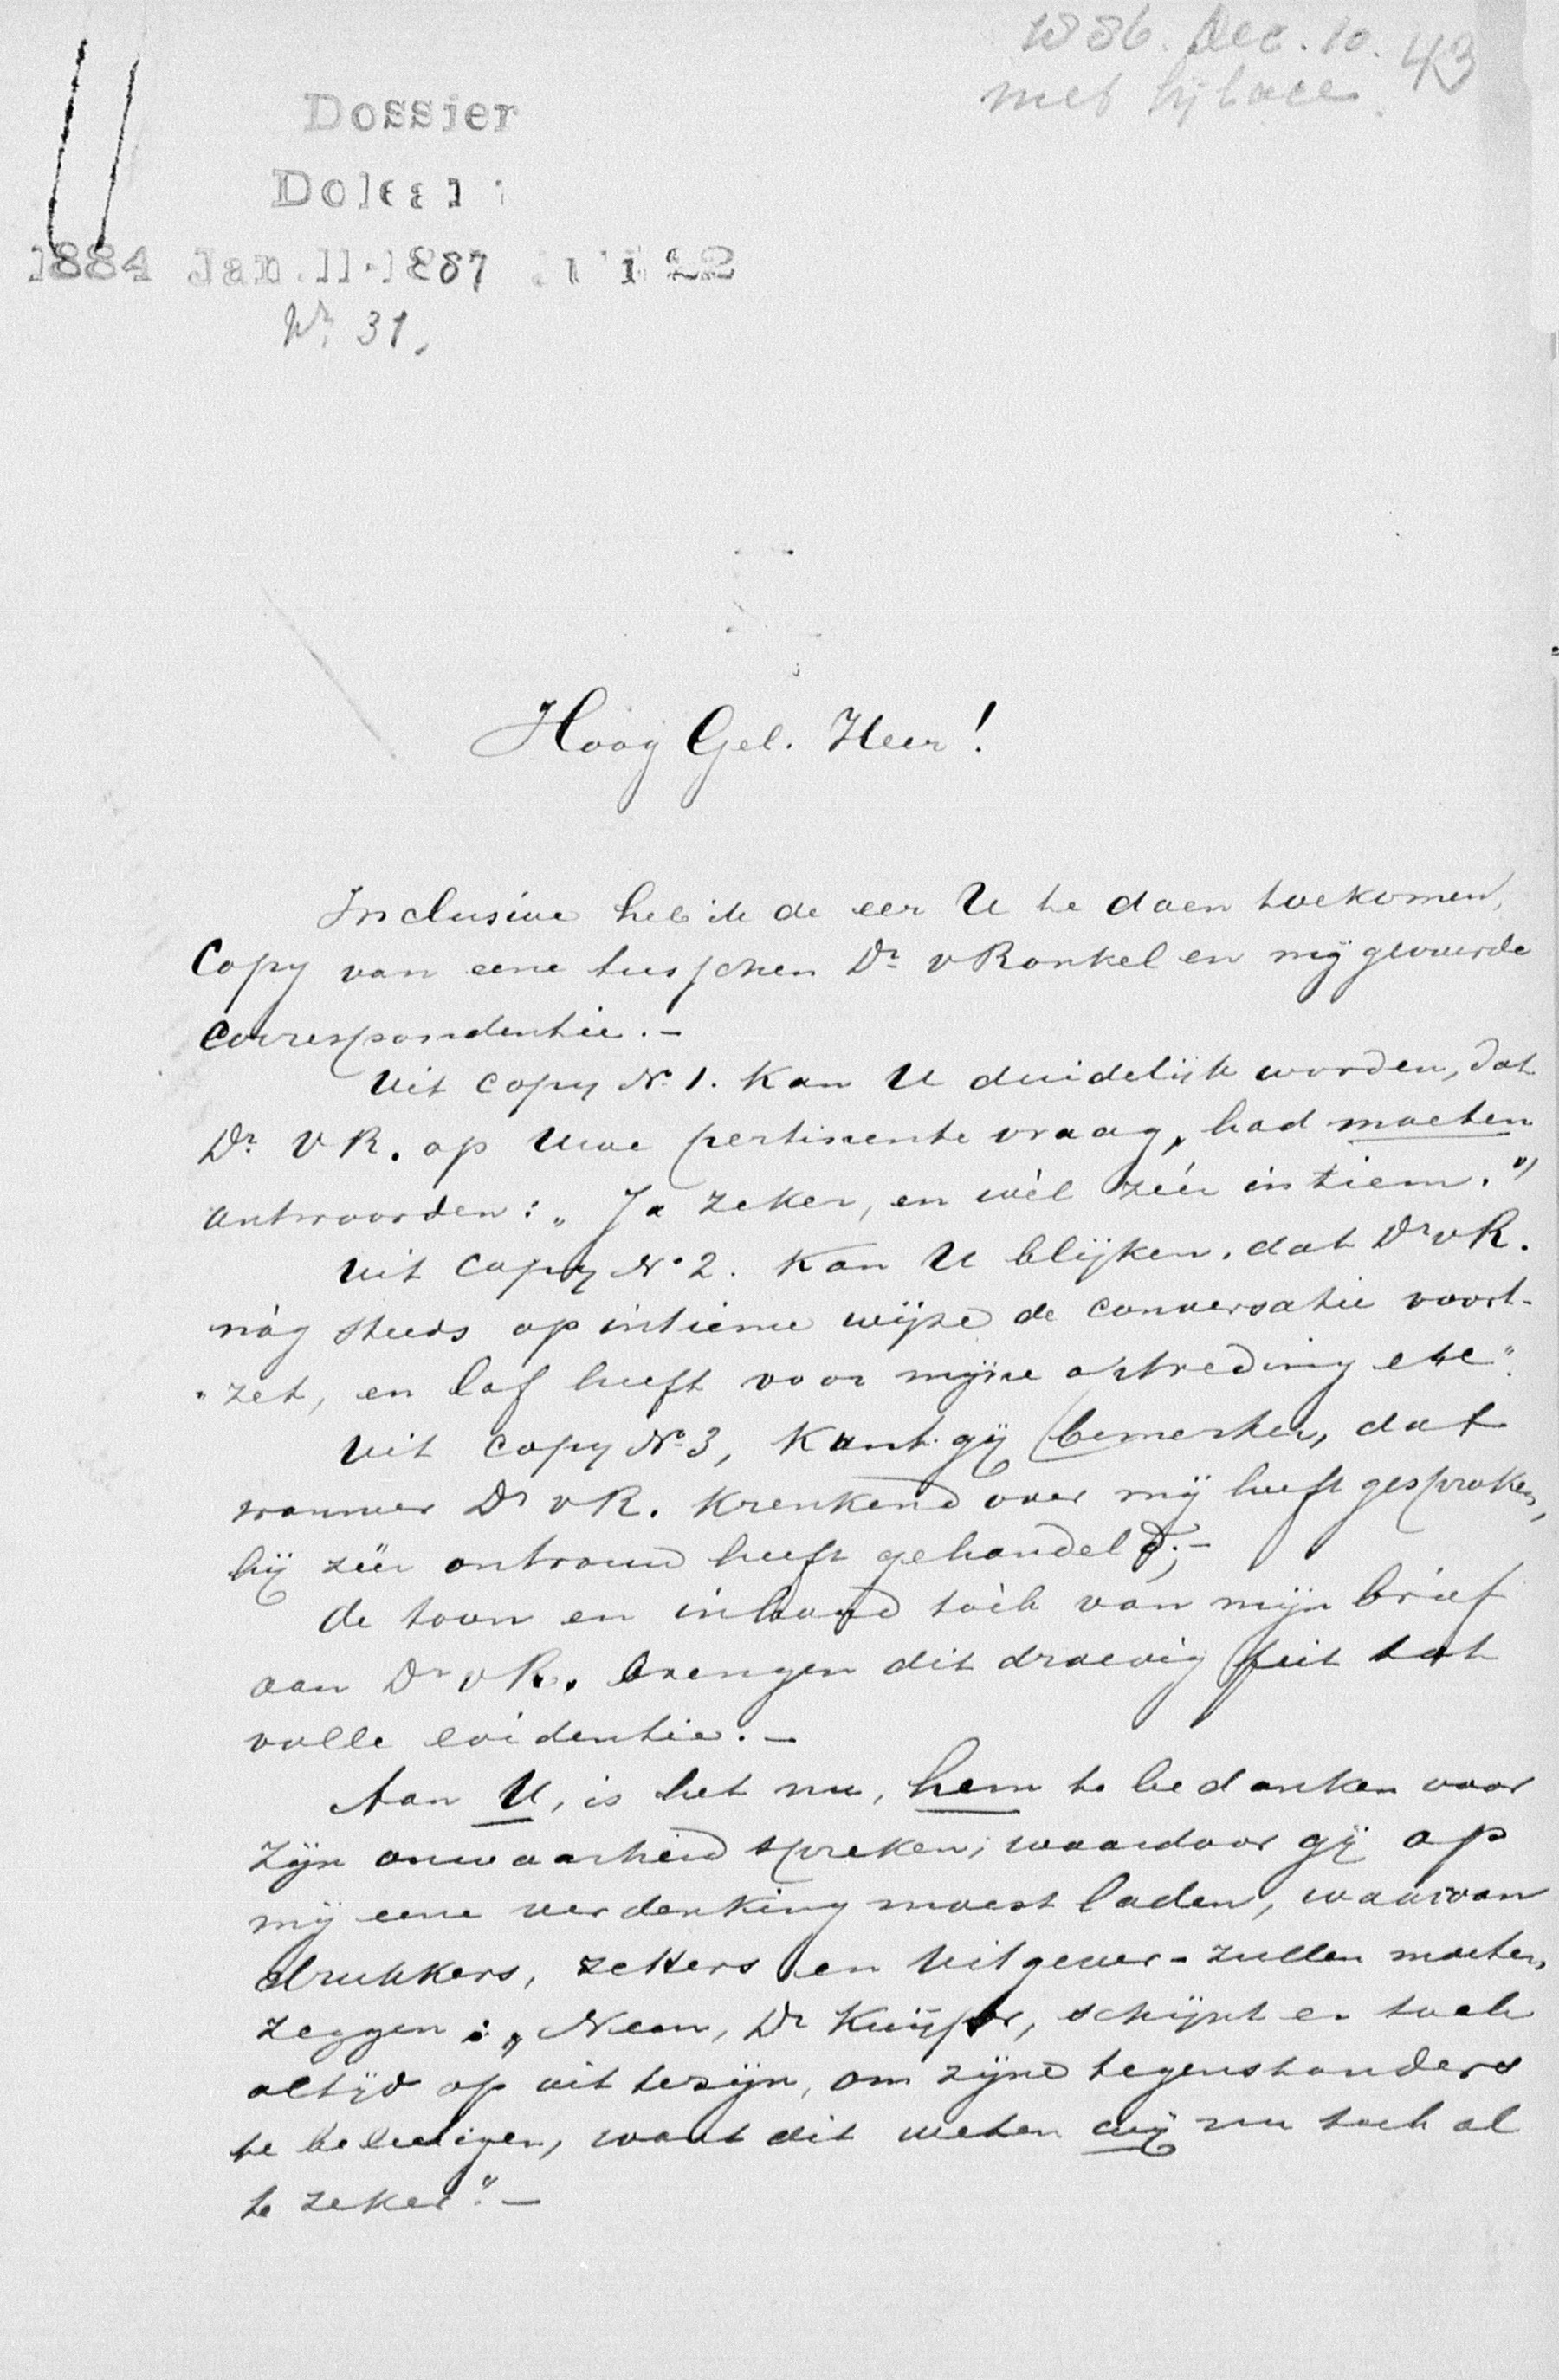 1886. Dec. 10. 43
met bijlage
Dossier
Doleantie
1884 Jan. 11-1887
Nr. 31.
Hoog Gel. Heer!
Inclusive heb ik de eer U te doen toekomen,
Copy van eene tusschen Dr. v Ronkel en mij gevoerde
Correspondentie. –
Uit copy No. 1. kan U duidelijk worden, dat
Dr. v R. op Uwe pertinente vraag, had moeten
antwoorden: „Ja zeker, en wèl zéér intiem."
Uit Copy No 2. kan U blijken, dat Dr v R.
nòg steeds op intieme wijze de conversatie voort-
„zet, en lof heeft voor mijne optreding etc".
Uit copy No 3, kunt gij bemerken, dat
wanneer Dr v R. krenkend over mij heeft gesproken,
hij zéér ontrouw heeft gehandeld; –
de toon en inhoud tòch van mijn brief
aan Dr v R. brengen dit droevig feit tot
volle evidentie. –
Aan U, is het nu, hem te bedanken voor
zijn onwaarheid spreken; waardoor gij op
mij eene verdenking moest laden, waarvan
drukkers, zetters en Uitgever – zullen moeten
zeggen: „Neen, Dr Kuijper, schijnt er toch
altijd op uit te zijn, om zijne tegenstanders
te beleedigen, want dit weten wij nu toch al
te zeker". –